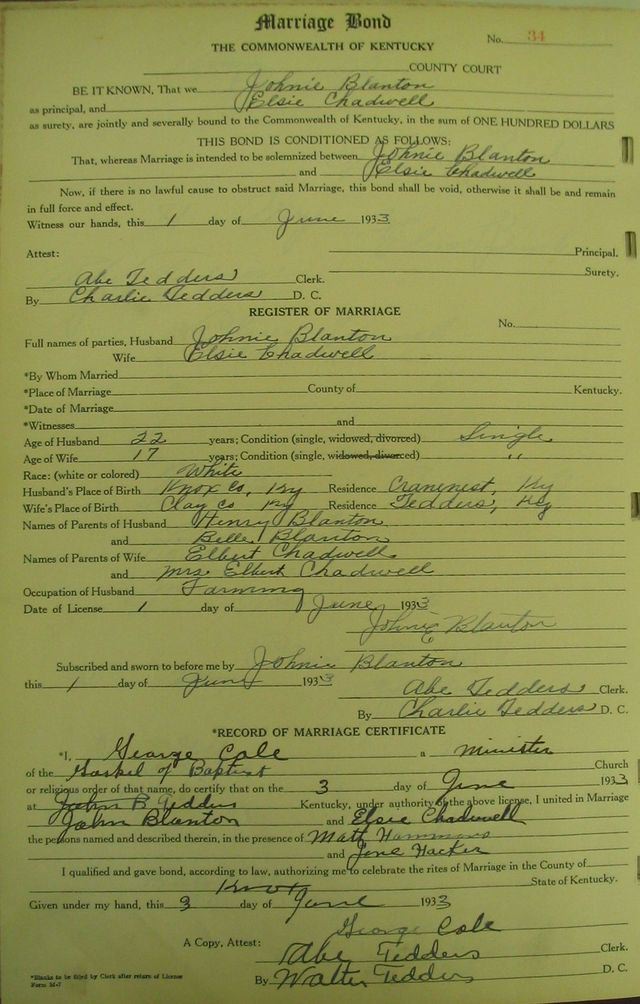 Marriage Bond
No. 34
THE COMMONWEALTH OF KENTUCKY
COUNTY COURT
BE IT KNOWN, That we Johnie Blanton
as principal, and Elsie Chadwell
as surety, are jointly and severally bound to the Commonwealth of Kentucky, in the sum of ONE HUNDRED DOLLARS
THIS BOND IS CONDITIONED AS FOLLOWS:
That, whereas Marriage is intended to be solemnized between Johnie Blanton
and Elsie Chadwell
Now, if there is no lawful cause to obstruct said Marriage, this bond shall be void, otherwise it shall be and remain
in full force and effect.
Witness our hands, this 1 day of June 1933
Attest: Principal.
Surety.
Abe Tedders Clerk.
By Charlie Tedders D. C.
REGISTER OF MARRIAGE
No.
Full names of parties, Husband Johnie Blanton
Wife Elsie Chadwell
*By Whom Married
*Place of Marriage County of Kentucky.
*Date of Marriage
*Witnesses and
Age of Husband 22 years; Condition (single, widowed, divorced) Single
Age of Wife 17 years; Condition (single, widowed, divorced) "
Race: (white or colored) White
Husband's Place of Birth Knox Co, Ky Residence Cranenest, Ky
Wife's Place of Birth Clay Co Ky Residence Tedders, Ky
Names of Parents of Husband Henry Blanton
and Belle Blanton
Names of Parents of Wife Elbert Chadwell
and Mrs Elbert Chadwell
Occupation of Husband Farming
Date of License 1 day of June 1933
Johnie Blanton
Subscribed and sworn to before me by Johnie Blanton
this 1 day of June 1933
Abe Tedders Clerk.
By Charlie Tedders D. C.
*RECORD OF MARRIAGE CERTIFICATE
*I, George Cole a minister
of the Gospel of Baptist Church
or religious order of that name, do certify that on the 3 day of June 1933
at John B Tedders Kentucky, under authority of the above license, I united in Marriage
John Blanton and Elsie Chadwell
the persons named and described therein, in the presence of Matt Hammons
and Jene Hacker
I qualified and gave bond, according to law, authorizing me to celebrate the rites of Marriage in the County of
Knox State of Kentucky.
Given under my hand, this 3 day of June 1933
George Cole
A Copy, Attest: Abe Tedders Clerk.
By Walter Tedders D. C.
*Blanks to be filed by Clerk after return of License
Form M-7